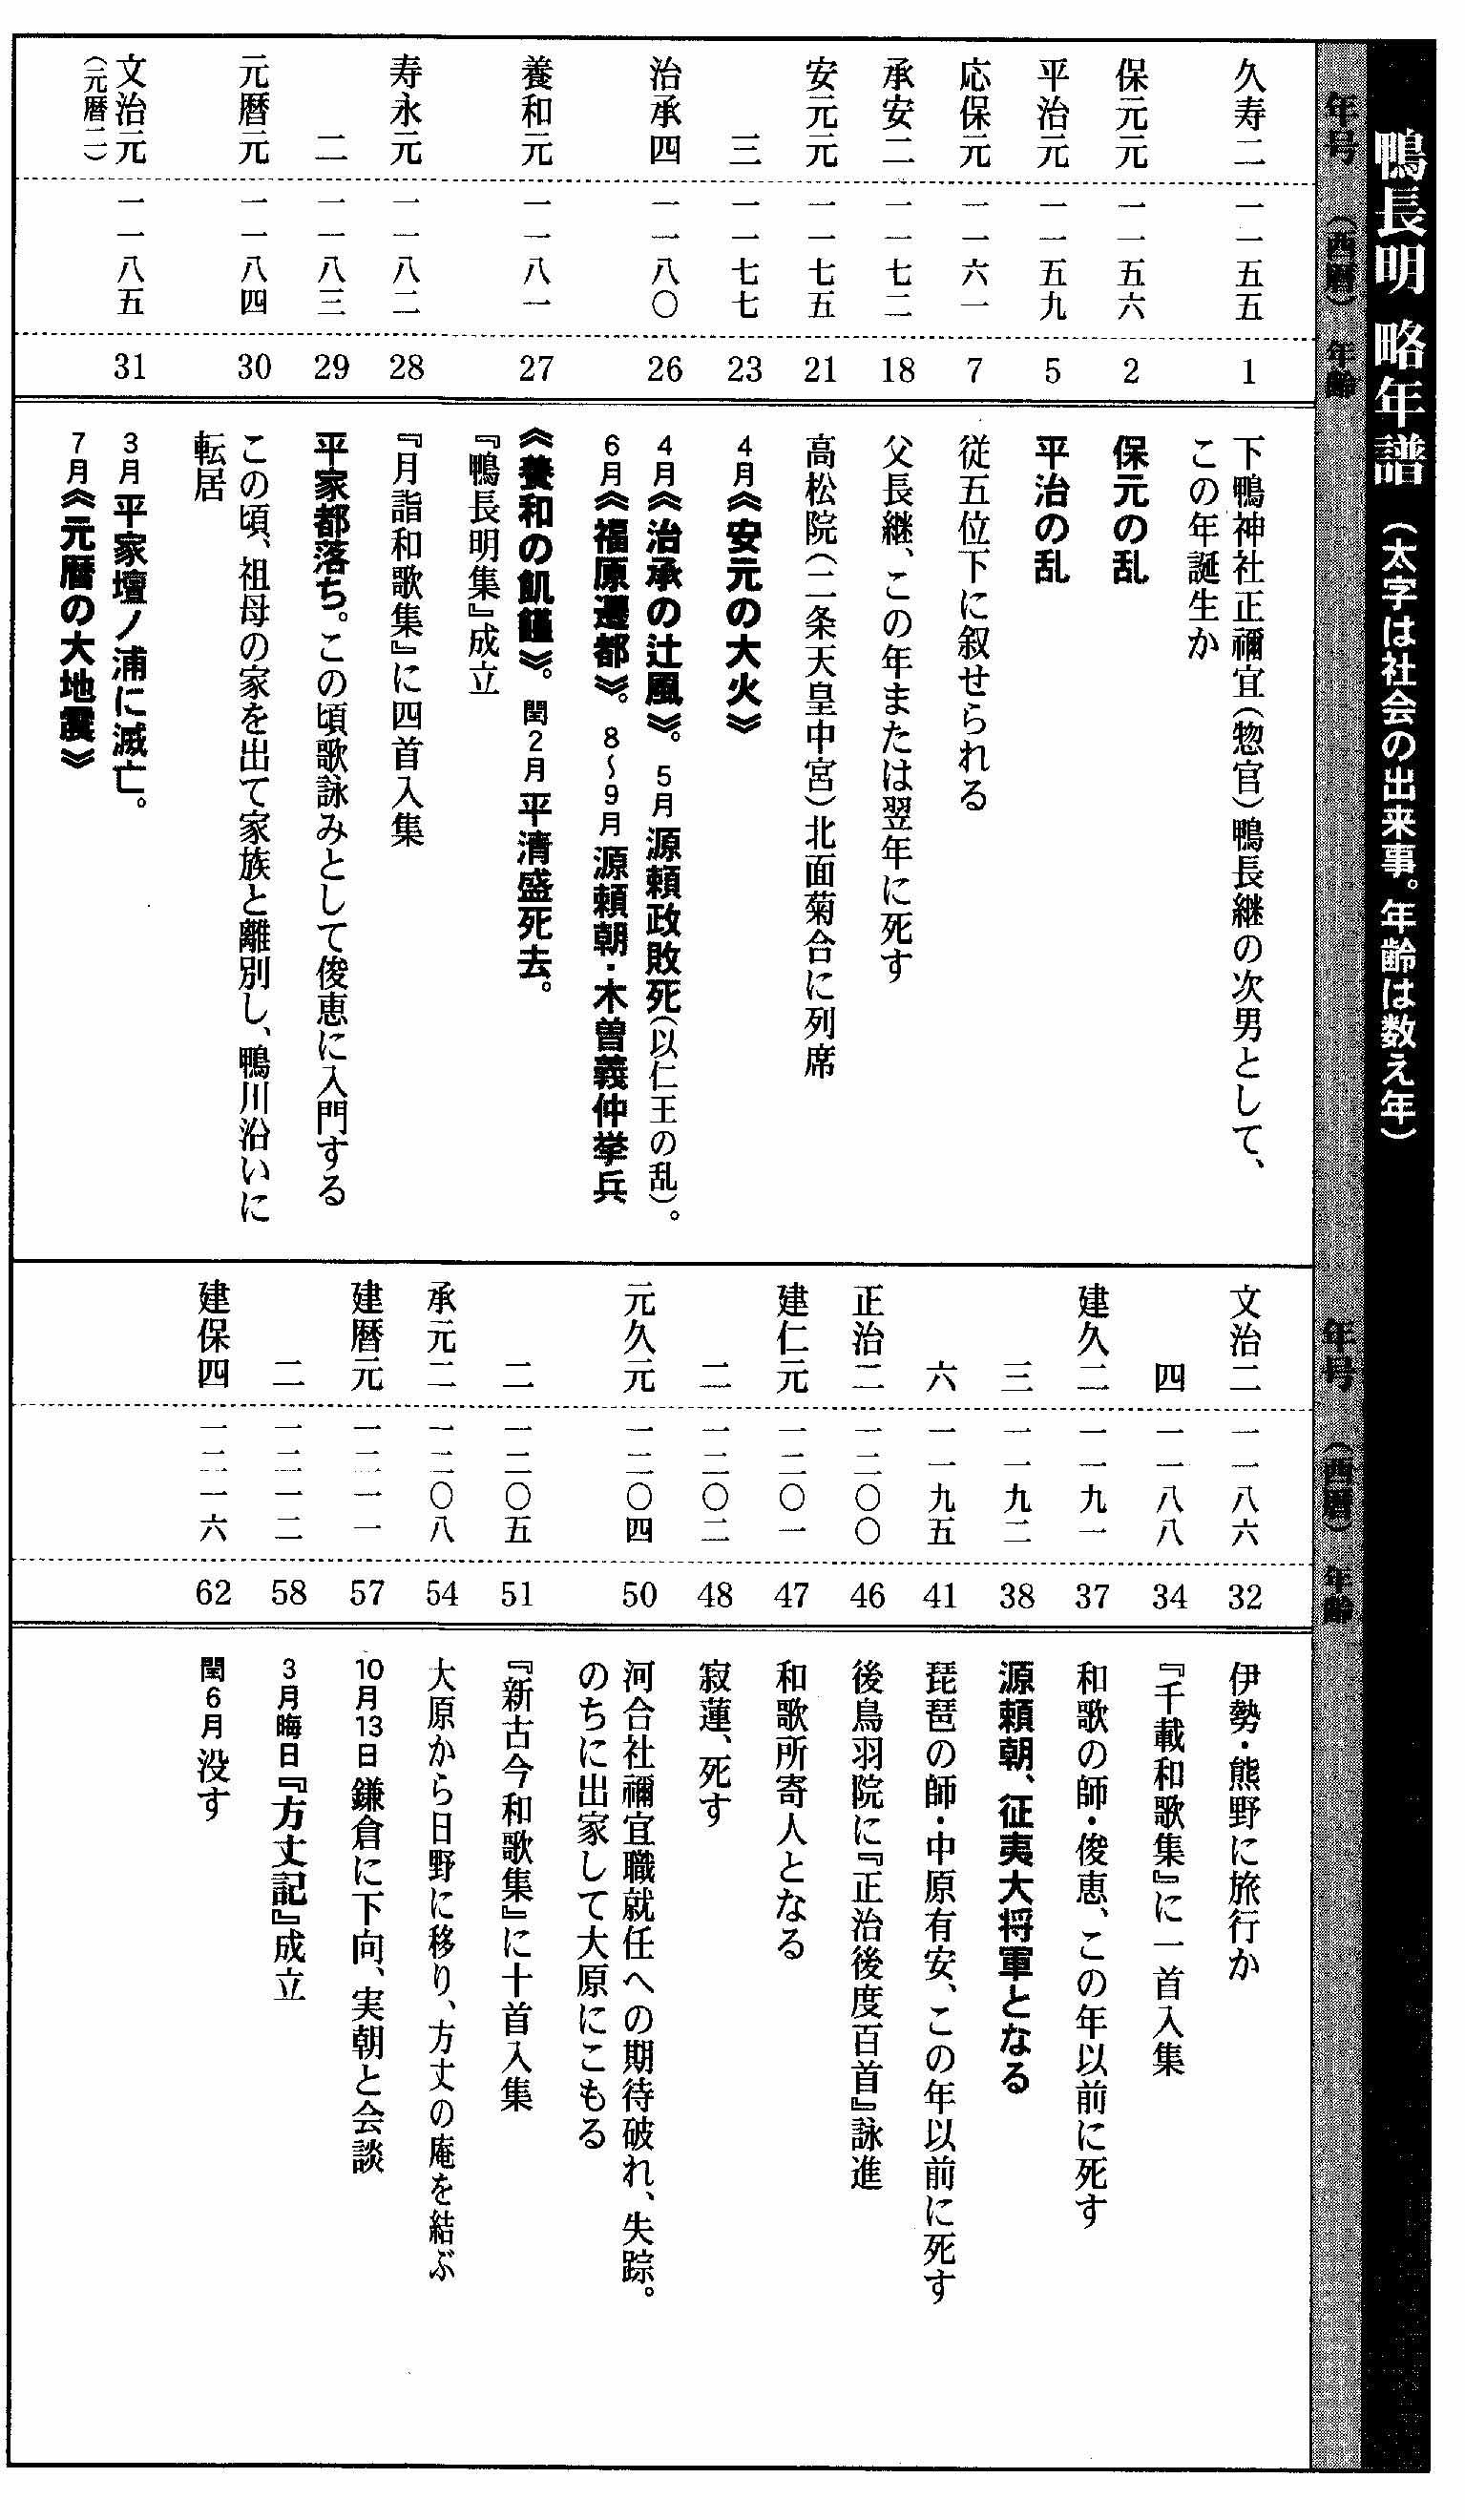 鴨長明 略年譜 (太字は社会の出来事。年齢は数え年)
年号 (西暦) 年齢
久寿二 一一五五 1 下鴨神社正禰宜(惣官)鴨長継の次男として、
この年誕生か
保元元 一一五六 2 保元の乱
平治元 一一五九 5 平治の乱
応保元 一一六一 7 従五位下に叙せられる
承安二 一一七二 18 父長継、この年または翌年に死す
安元元 一一七五 21 高松院(二条天皇中宮)北面菊合に列席
三 一一七七 23 4月《安元の大火》
治承四 一一八〇 26 4月《治承の辻風》。5月 源頼政敗死(以仁王の乱)。
6月《福原遷都》。8〜9月 源頼朝・木曽義仲挙兵
養和元 一一八一 27 《養和の飢饉》。閏2月 平清盛死去。
『鴨長明集』成立
寿永元 一一八二 28 『月詣和歌集』に四首入集
二 一一八三 29 平家都落ち。この頃歌詠みとして俊恵に入門する
元暦元 一一八四 30 この頃、祖母の家を出て家族と離別し、鴨川沿いに
転居
文治元 一一八五 31 3月 平家壇ノ浦に滅亡。
(元暦二) 7月《元暦の大地震》
年号 (西暦) 年齢
文治二 一一八六 32 伊勢・熊野に旅行か
四 一一八八 34 『千載和歌集』に一首入集
建久二 一一九一 37 和歌の師・俊恵、この年以前に死す
三 一一九二 38 源頼朝、征夷大将軍となる
六 一一九五 41 琵琶の師・中原有安、この年以前に死す
正治二 一二〇〇 46 後鳥羽院に『正治後度百首』詠進
建仁元 一二〇一 47 和歌所寄人となる
二 一二〇二 48 寂蓮、死す
元久元 一二〇四 50 河合社禰宜職就任への期待破れ、失踪。
のちに出家して大原にこもる
二 一二〇五 51 『新古今和歌集』に十首入集
承元二 一二〇八 54 大原から日野に移り、方丈の庵を結ぶ
建暦元 一二一一 57 10月13日 鎌倉に下向、実朝と会談
二 一二一二 58 3月晦日『方丈記』成立
建保四 一二一六 62 閏6月 没す